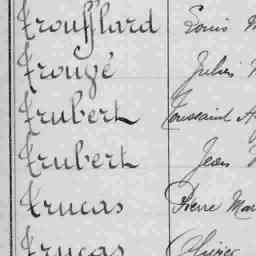 Troufflard Louis
Trougé Julien
Trubert Toussaint
Trubert Jean
Trucas Pierre Mar
Trucas Olivier